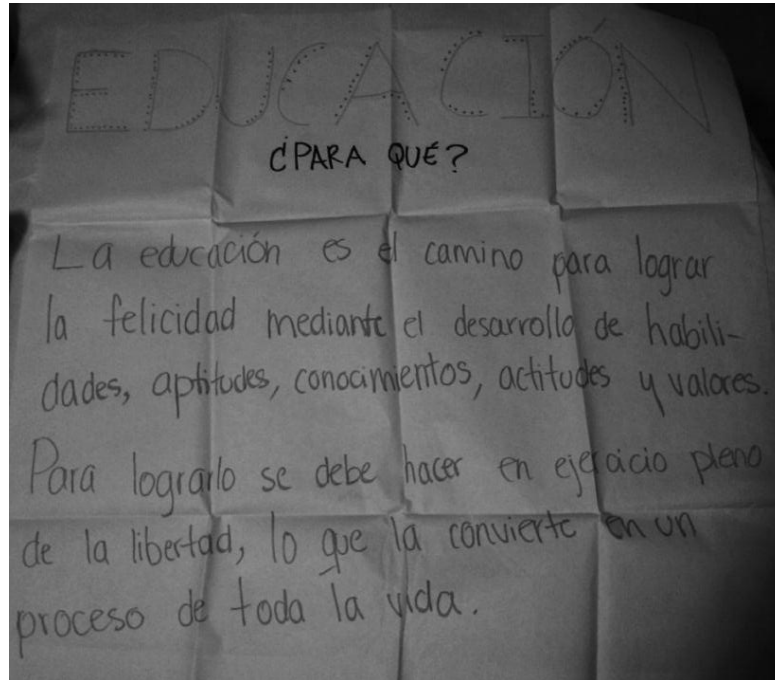 EDUCACIÓN
¿PARA QUÉ?
La educación es el camino para lograr
la felicidad mediante el desarrollo de habili-
dades, aptitudes, conocimientos, actitudes y valores.
Para lograrlo se debe hacer en ejercicio pleno
de la libertad, lo que la convierte en un
proceso de toda la vida.